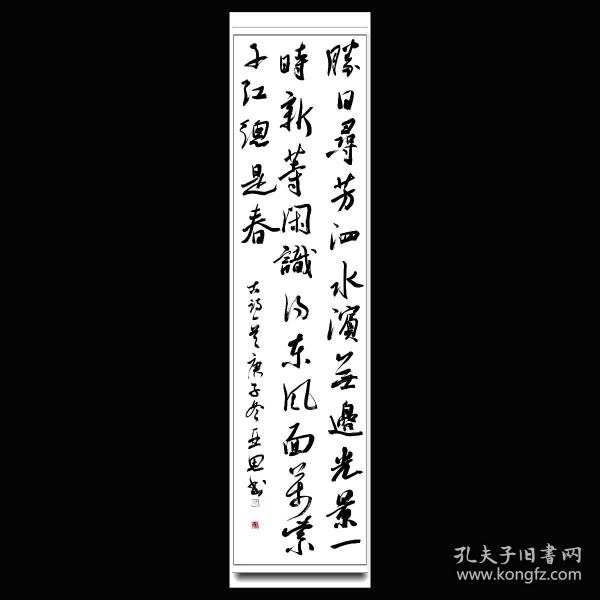 勝日尋芳泗水濱無邊光景一
時新等閑識得東風面萬紫
千紅總是春
古詩一首庚子冬亞書
孔夫子旧書网
www.kongfz.com